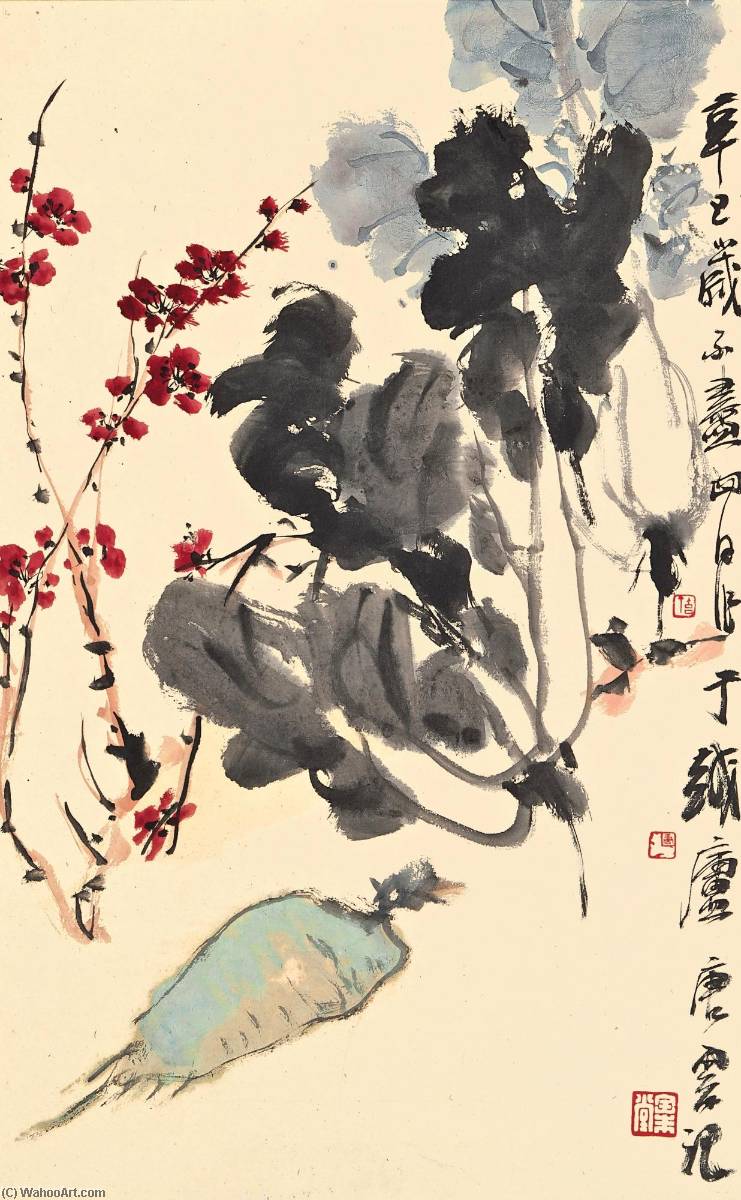 辛巳歲不盡四日作于廬唐雲記
(C) WahooArt.com